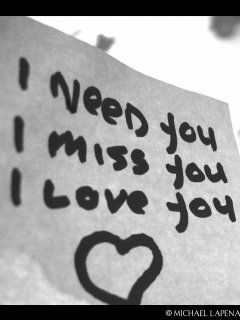 I Need you
I miss you
I Love you
© MICHAEL LAPENA